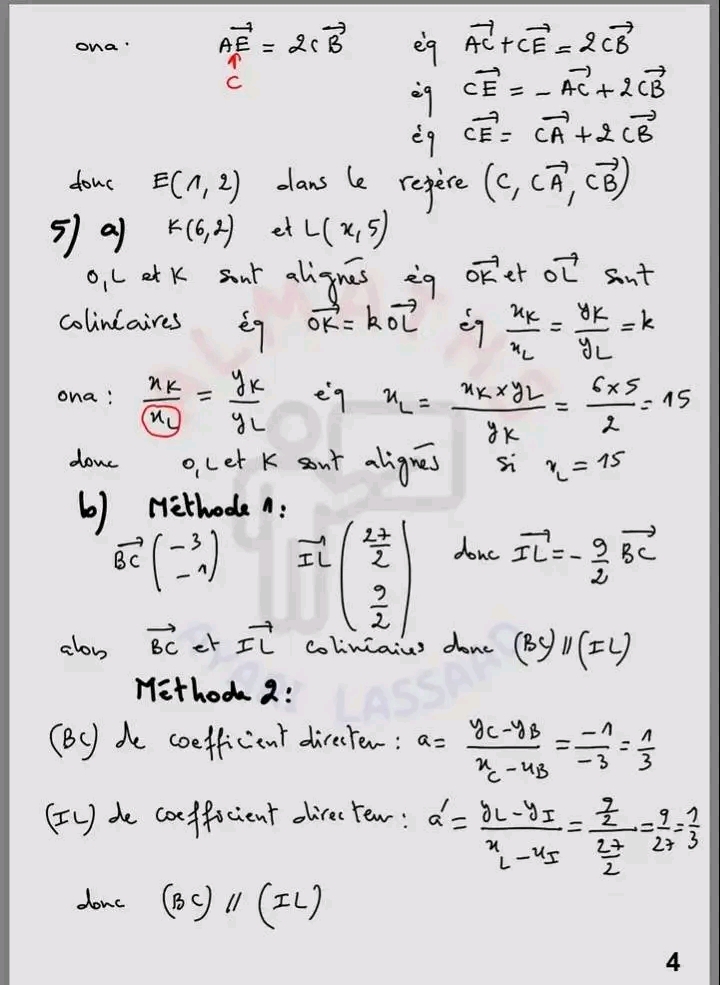 ona: AE⃗ = 2CB⃗ éq AC⃗ + CE⃗ = 2CB⃗
↑
C
éq CE⃗ = - AC⃗ + 2CB⃗
éq CE⃗ = CA⃗ + 2CB⃗
donc E(1, 2) dans le repère (C, CA⃗, CB⃗)
5) a) K(6,2) et L(x,5)
O,L et K sont alignés éq OK⃗ et OL⃗ sont
colinéaires éq OK⃗ = kOL⃗ éq xK/xL = yK/yL = k
ona: xK/xL = yK/yL éq xL = (xK × yL)/yK = (6×5)/2 = 15
donc O,L et K sont alignés si xL = 15
b) Méthode 1:
BC⃗ (-3 -1) IL⃗ (27/2 9/2) donc IL⃗ = - 9/2 BC⃗
alors BC⃗ et IL⃗ coliniaires donc (BC) // (IL)
Méthode 2:
(BC) de coefficient directeu : a = (yC - yB)/(xC - xB) = -1/-3 = 1/3
(IL) de coefficient directeur : a' = (yL - yI)/(xL - xI) = (9/2)/(27/2) = 9/27 = 1/3
donc (BC) // (IL)
4
ALMATHS
AYARI LASSARD